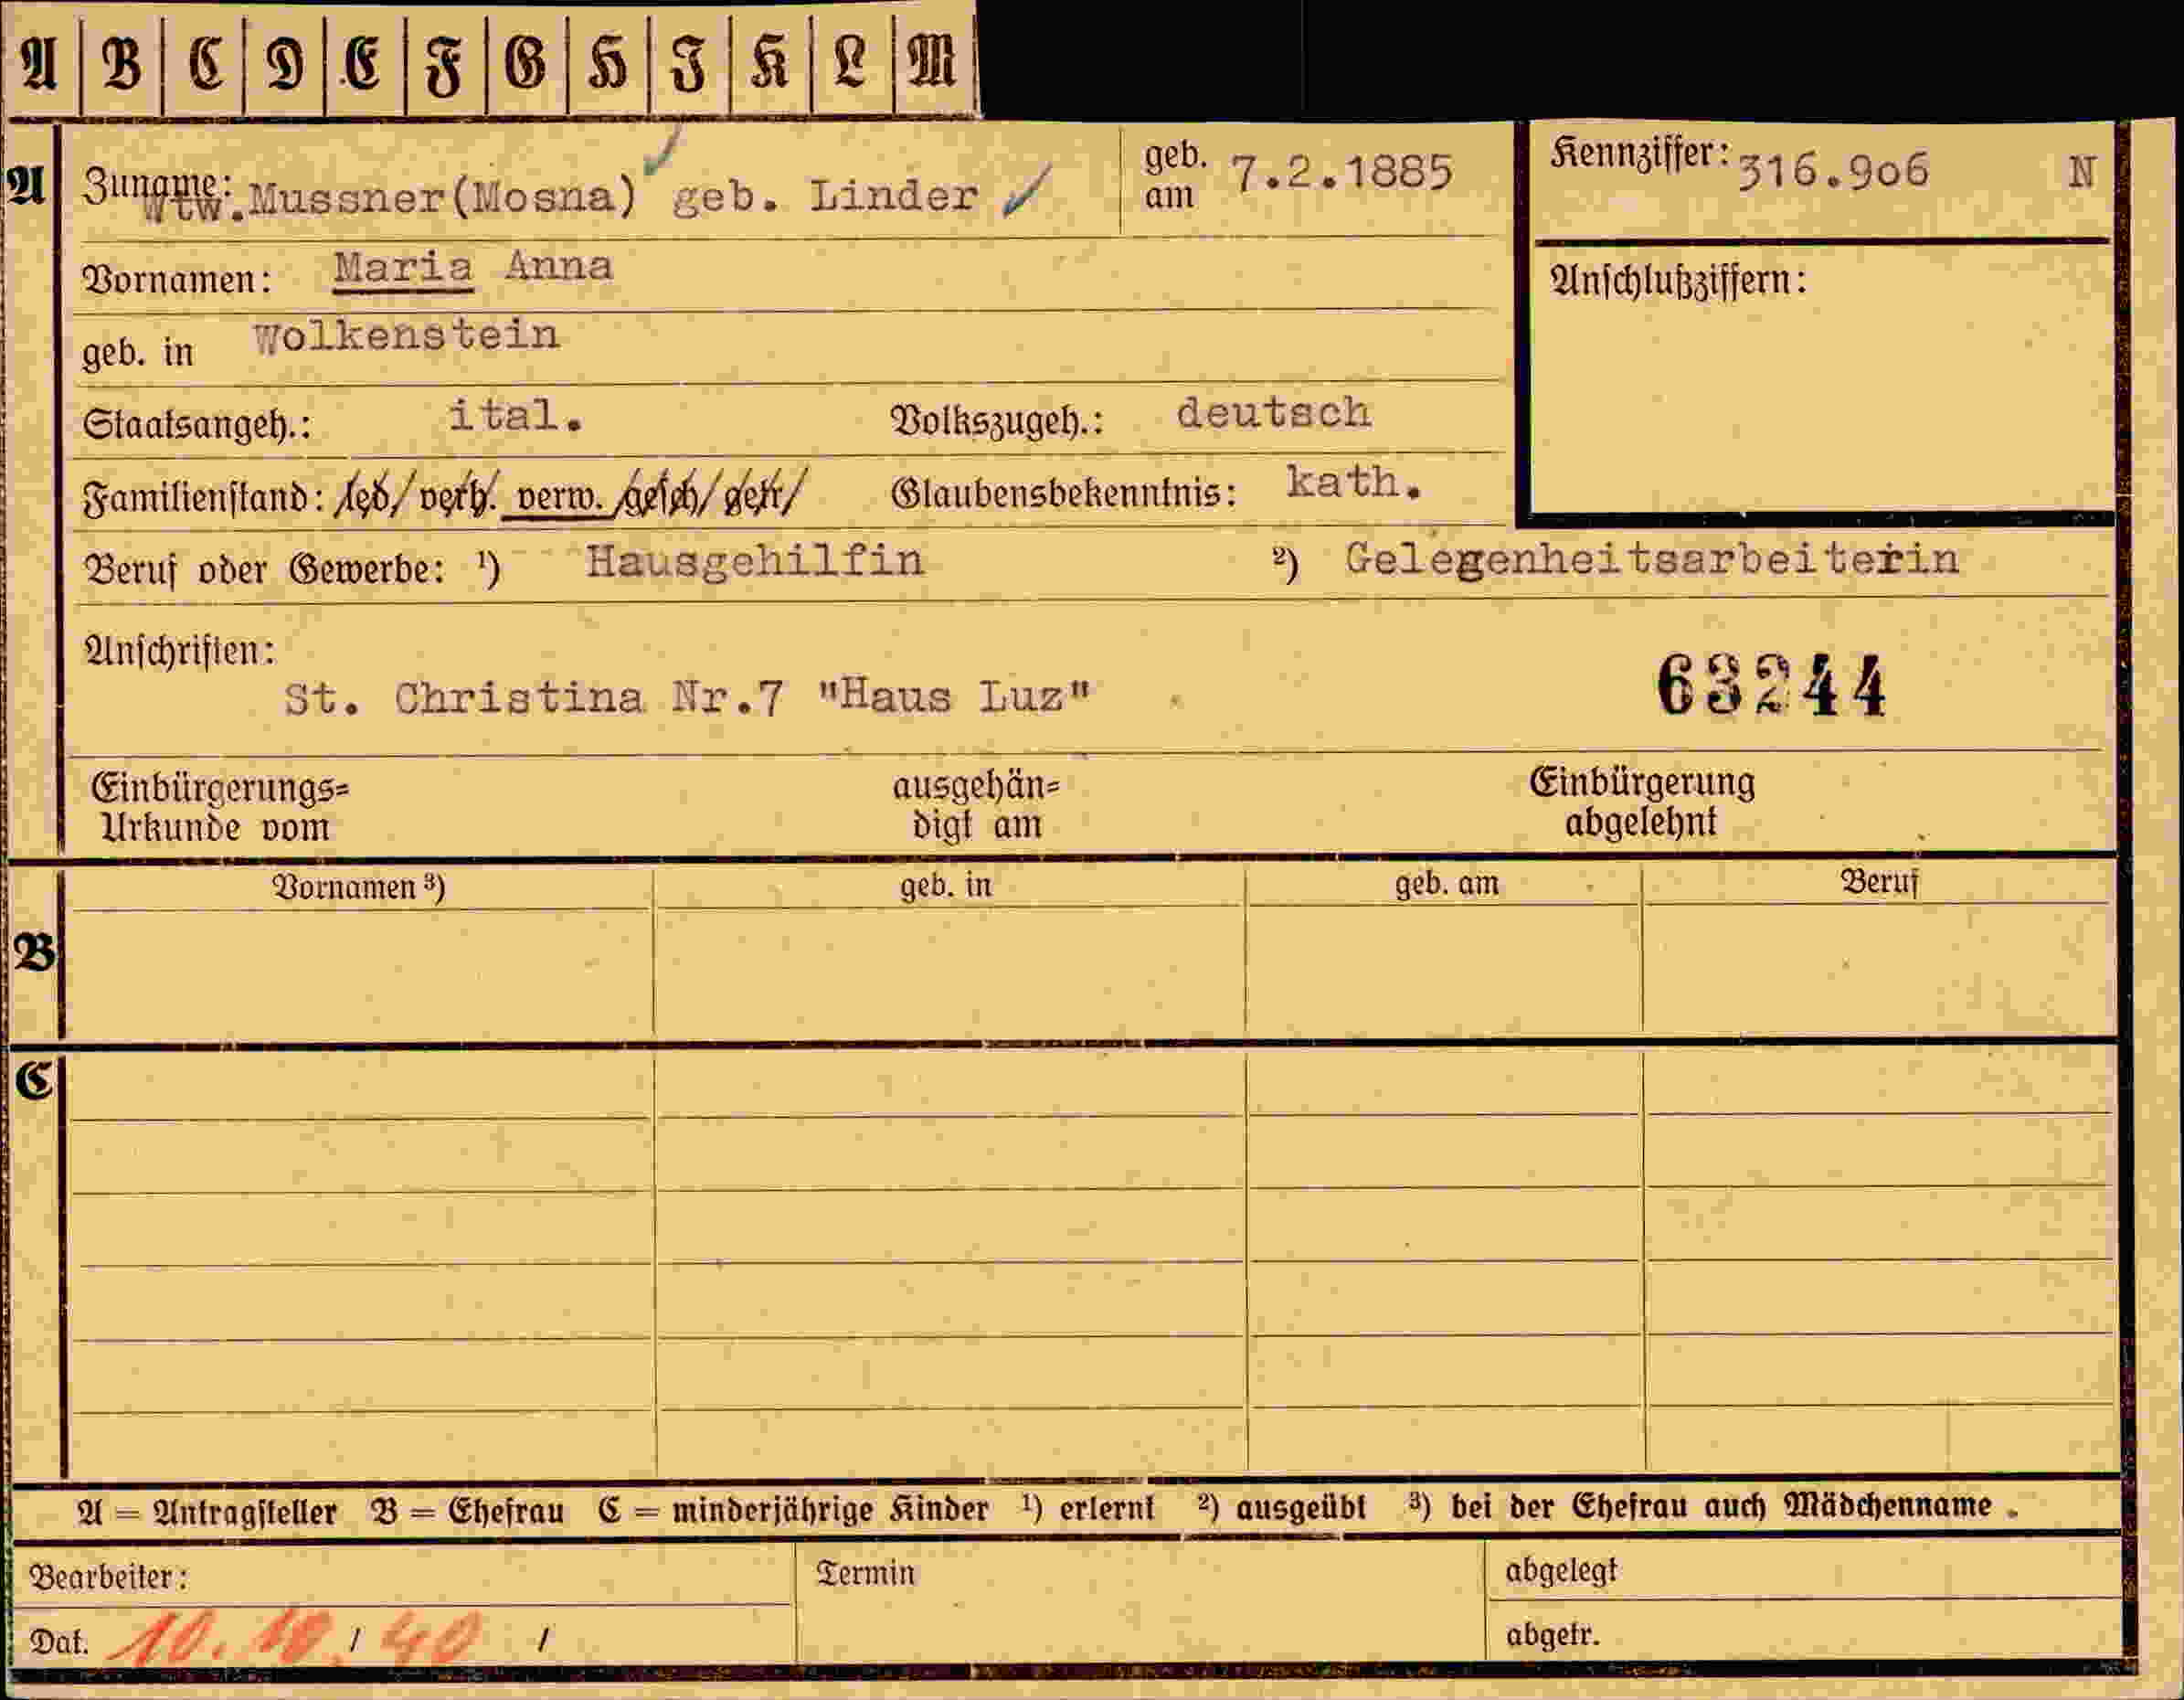 A B C D E F G H I K L M
A Zuname: Wtw. Mussner(Mosna) geb. Linder geb. am 7.2.1885 Kennziffer: 316.906 N
Vornamen: Maria Anna Anschlußziffern:
geb. in Wolkenstein
Staatsangeh.: ital. Volkszugeh.: deutsch
Familienstand: led. verh. verw. gesch. getr. Glaubensbekenntnis: kath.
Beruf oder Gewerbe: ¹) Hausgehilfin ²) Gelegenheitsarbeiterin
Anschriften:
St. Christina Nr.7 "Haus Luz" 63244
Einbürgerungs= ausgehän= Einbürgerung
Urkunde vom digt am abgelehnt
Vornamen ³) geb. in geb. am Beruf
B
C
A = Antragsteller B = Ehefrau C = minderjährige Kinder ¹) erlernt ²) ausgeübt ³) bei der Ehefrau auch Mädchenname .
Bearbeiter: Termin abgelegt
Dat. 10. 10. / 40 / abgetr.